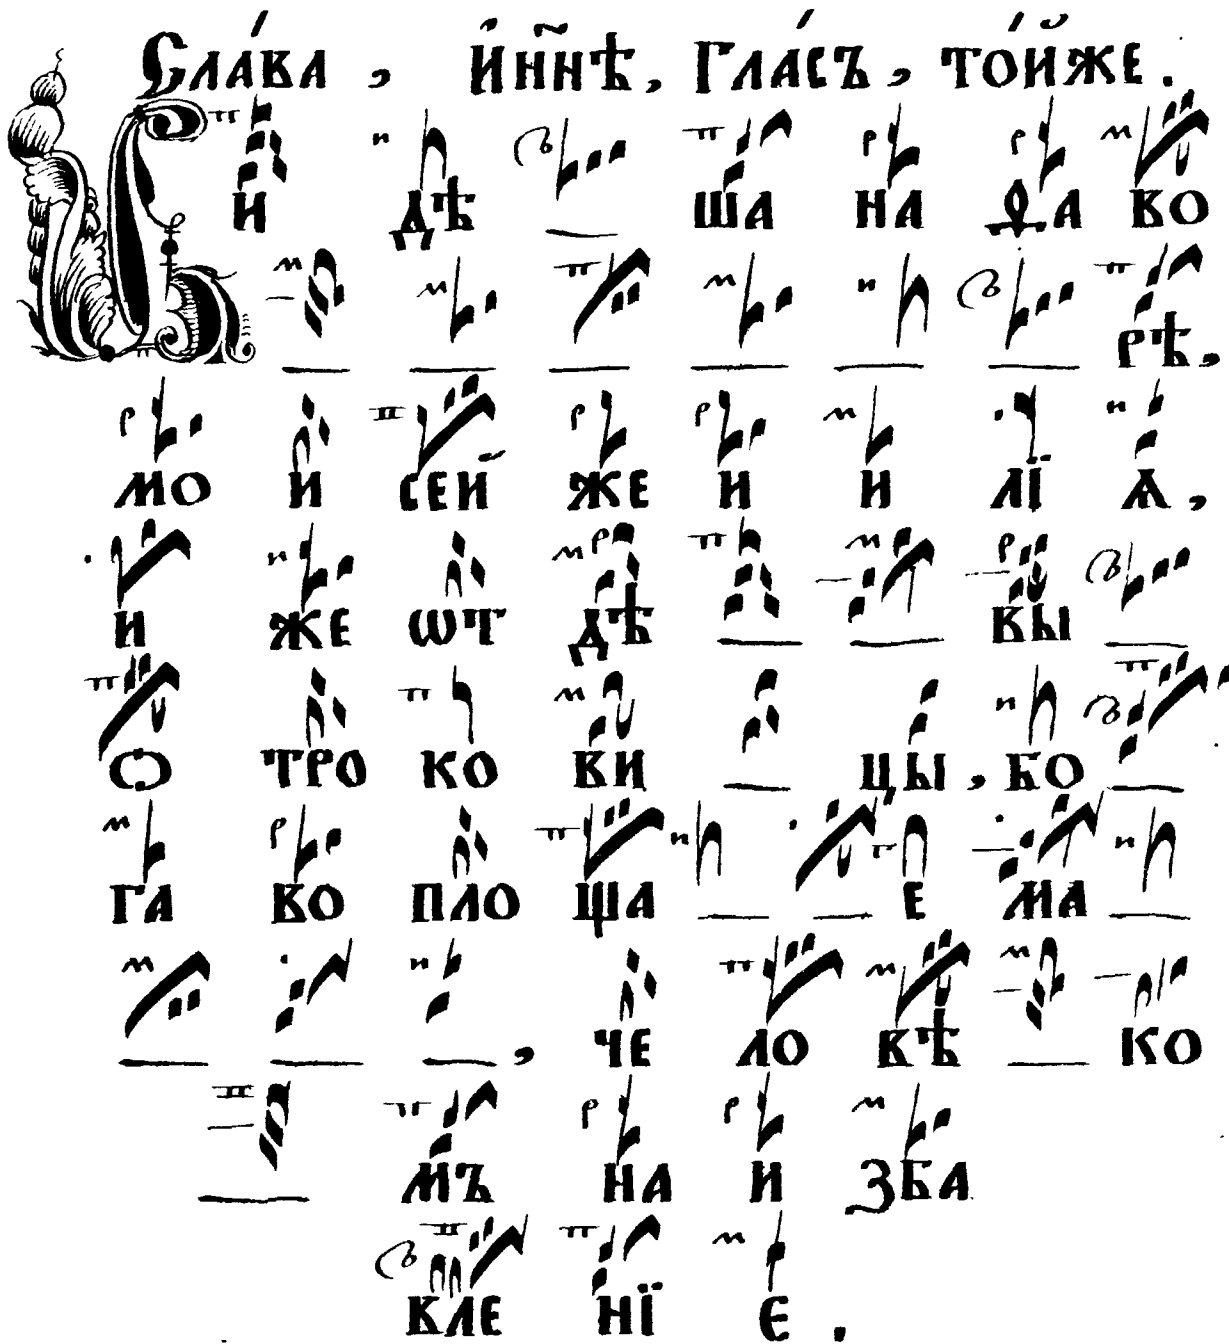 Сла́ва, И҆ н҃нѣ, Гла́съ, то́йже.
И и дѣ ша на Ѳа во
рѣ,
мо и сей же и и лї ѧ,
и же ѿт дѣ вы
О тро ко ви цы, бо
га во пло ща е ма
, че ло вѣ ко
мъ на и зба
вле нї е.